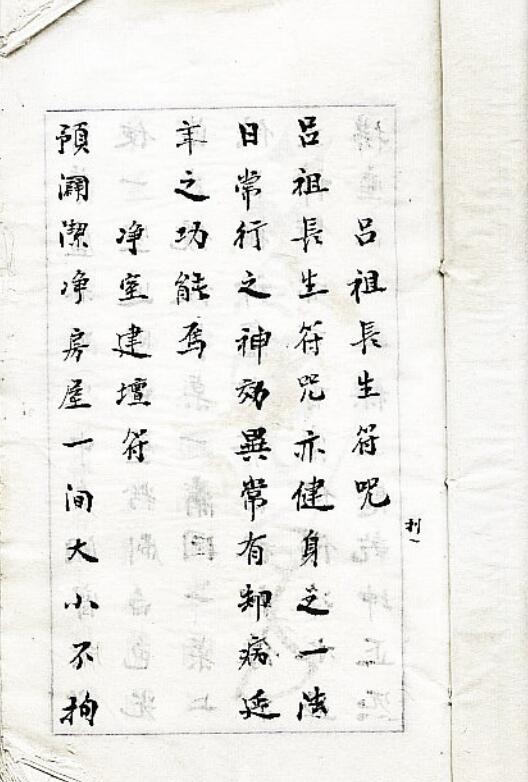 吕祖長生符咒
吕祖長生符咒亦健身之一法
日常行之神効異常有却病延
年之功能焉
净室建壇符
預潤潔净房屋一间大小不拘
利一